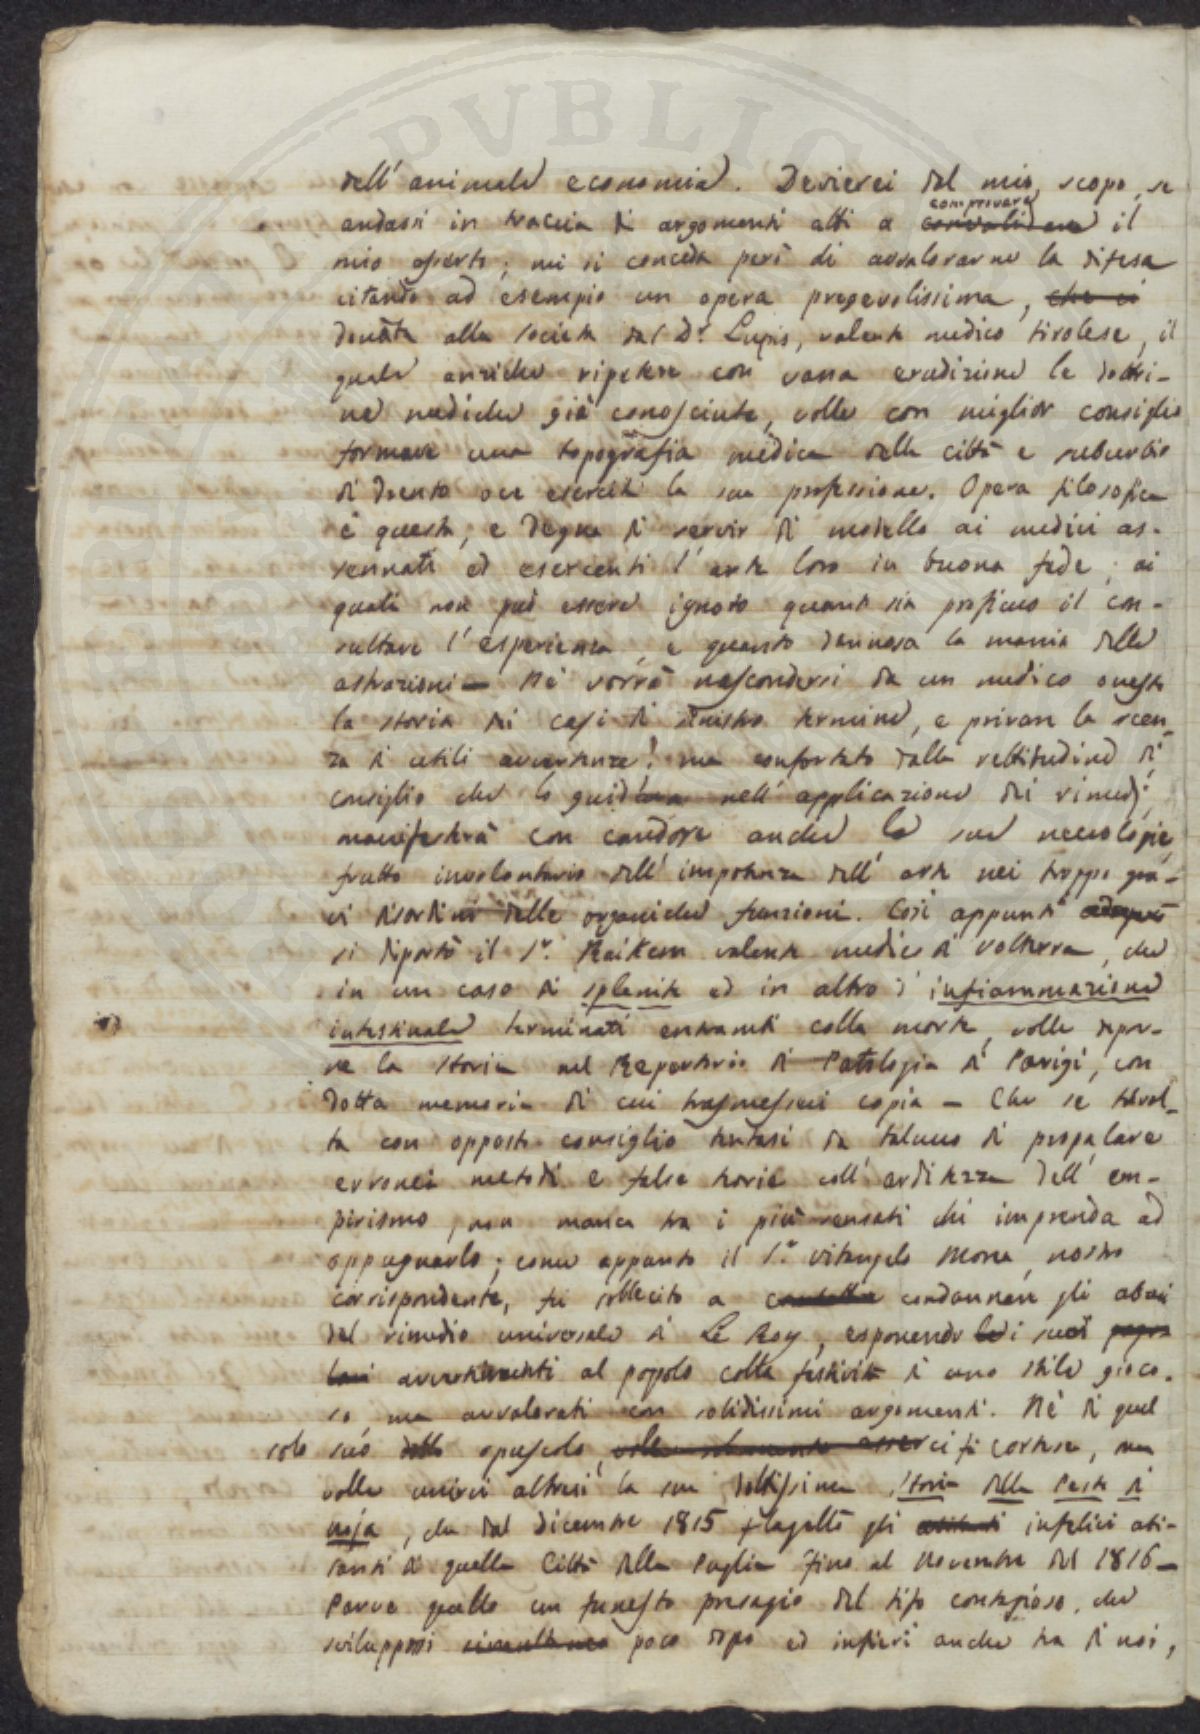 PVBLIC
dell' animale economia. Devierei dal mio scopo, se
comprovare
andassi in traccia di argomenti atti a convalidare il
mio asserto; mi si conceda però di avvalorarne la difesa
citando ad esempio un opera pregevolissima, che ci
donata alla società dal Dr. Lupis, valente medico tirolese, il
quale anziche ripetere con vana erudizione le dottri-
ne mediche già conosciute, volle con miglior consiglio
formare una topografia medica della città e suburbio
di Trento ove esercita la sua professione. Opera filosofica
è questa, e degna di servir di modello ai medici as-
sennati ed esercenti l'arte loro in buona fede; ai
quali non può essere ignoto quanto sia proficuo il con-
sultare l'esperienza, e quanto dannosa la mania delle
astrazioni — Nè vorrà nascondersi da un medico onesto
la storia dei casi di sinistro termine, e privare la scen-
za di utili avvertenze! ma confortato dalla rettitudine di
consiglio che lo guida nell' applicazione dei rimedj,
manifesterà con candore anche le sue necrologie,
frutto involontario dell' impotenza dell' arte nei troppo gra-
vi disordini delle organiche funzioni. Così appunto
si diportò il Sr. Raikem valente medico di Volterra, che
in un caso di splenite ed in altro d'infiammazione
intestinale terminati entrambi colla morte, volle depor-
ne la storia nel Repertorio di Patologia di Parigi, con
dotta memoria di cui trasmesseci copia — Che se talvol-
ta con opposto consiglio tentasi da taluno di propalare
erronei metodi e false teorie coll' arditezza dell' em-
pirismo, non manca tra i più sensati chi imprenda ad
oppugnarlo; come appunto il Sr. Vitangelo Morea, nostro
corrispondente, fu sollecito a condannare gli abusi
del rimedio universale di Le Roy, esponendo i suoi
avvertimenti al popolo colla festività di uno stile gioco-
so, ma avvalorati con solidissimi argomenti. Nè di quel
solo suo opuscolo, volle solamente esserci fù cortese, ma
volle unirvi altresì la sua dottissima Storia della Peste di
Noja, che dal dicembre 1815 flagellò gli infelici abi-
tanti di quella Città della Puglia fino al Novembre del 1816 —
Parve quello un funesto presagio del tifo contagioso, che
sviluppossi poco dopo ed infierì anche tra di noi,